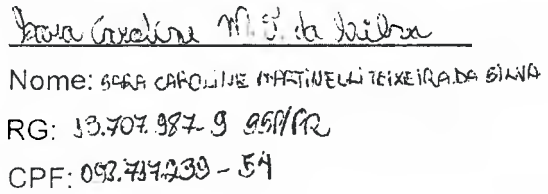 Sara Caroline M. T. da Silva
Nome: SARA CAROLINE MARTINELLI TEIXEIRA DA SILVA
RG: 13.707.987-9 SSP/PR
CPF: 093.717.239-54